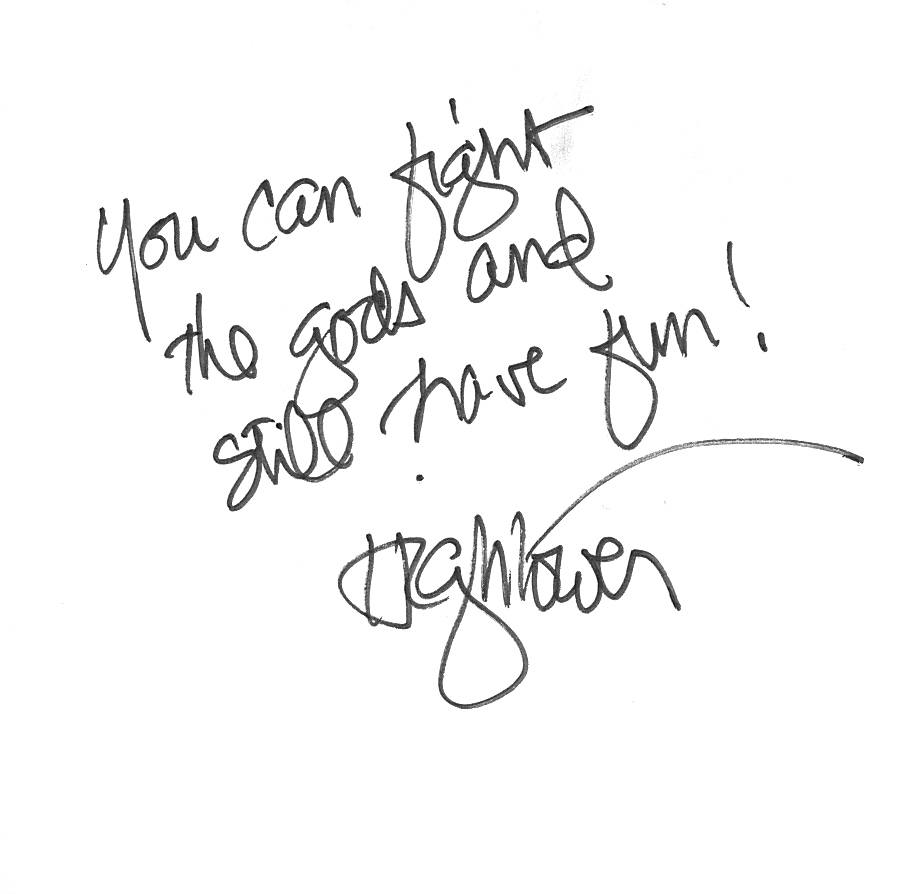 You can fight
the gods and
still have fun!
Hightower